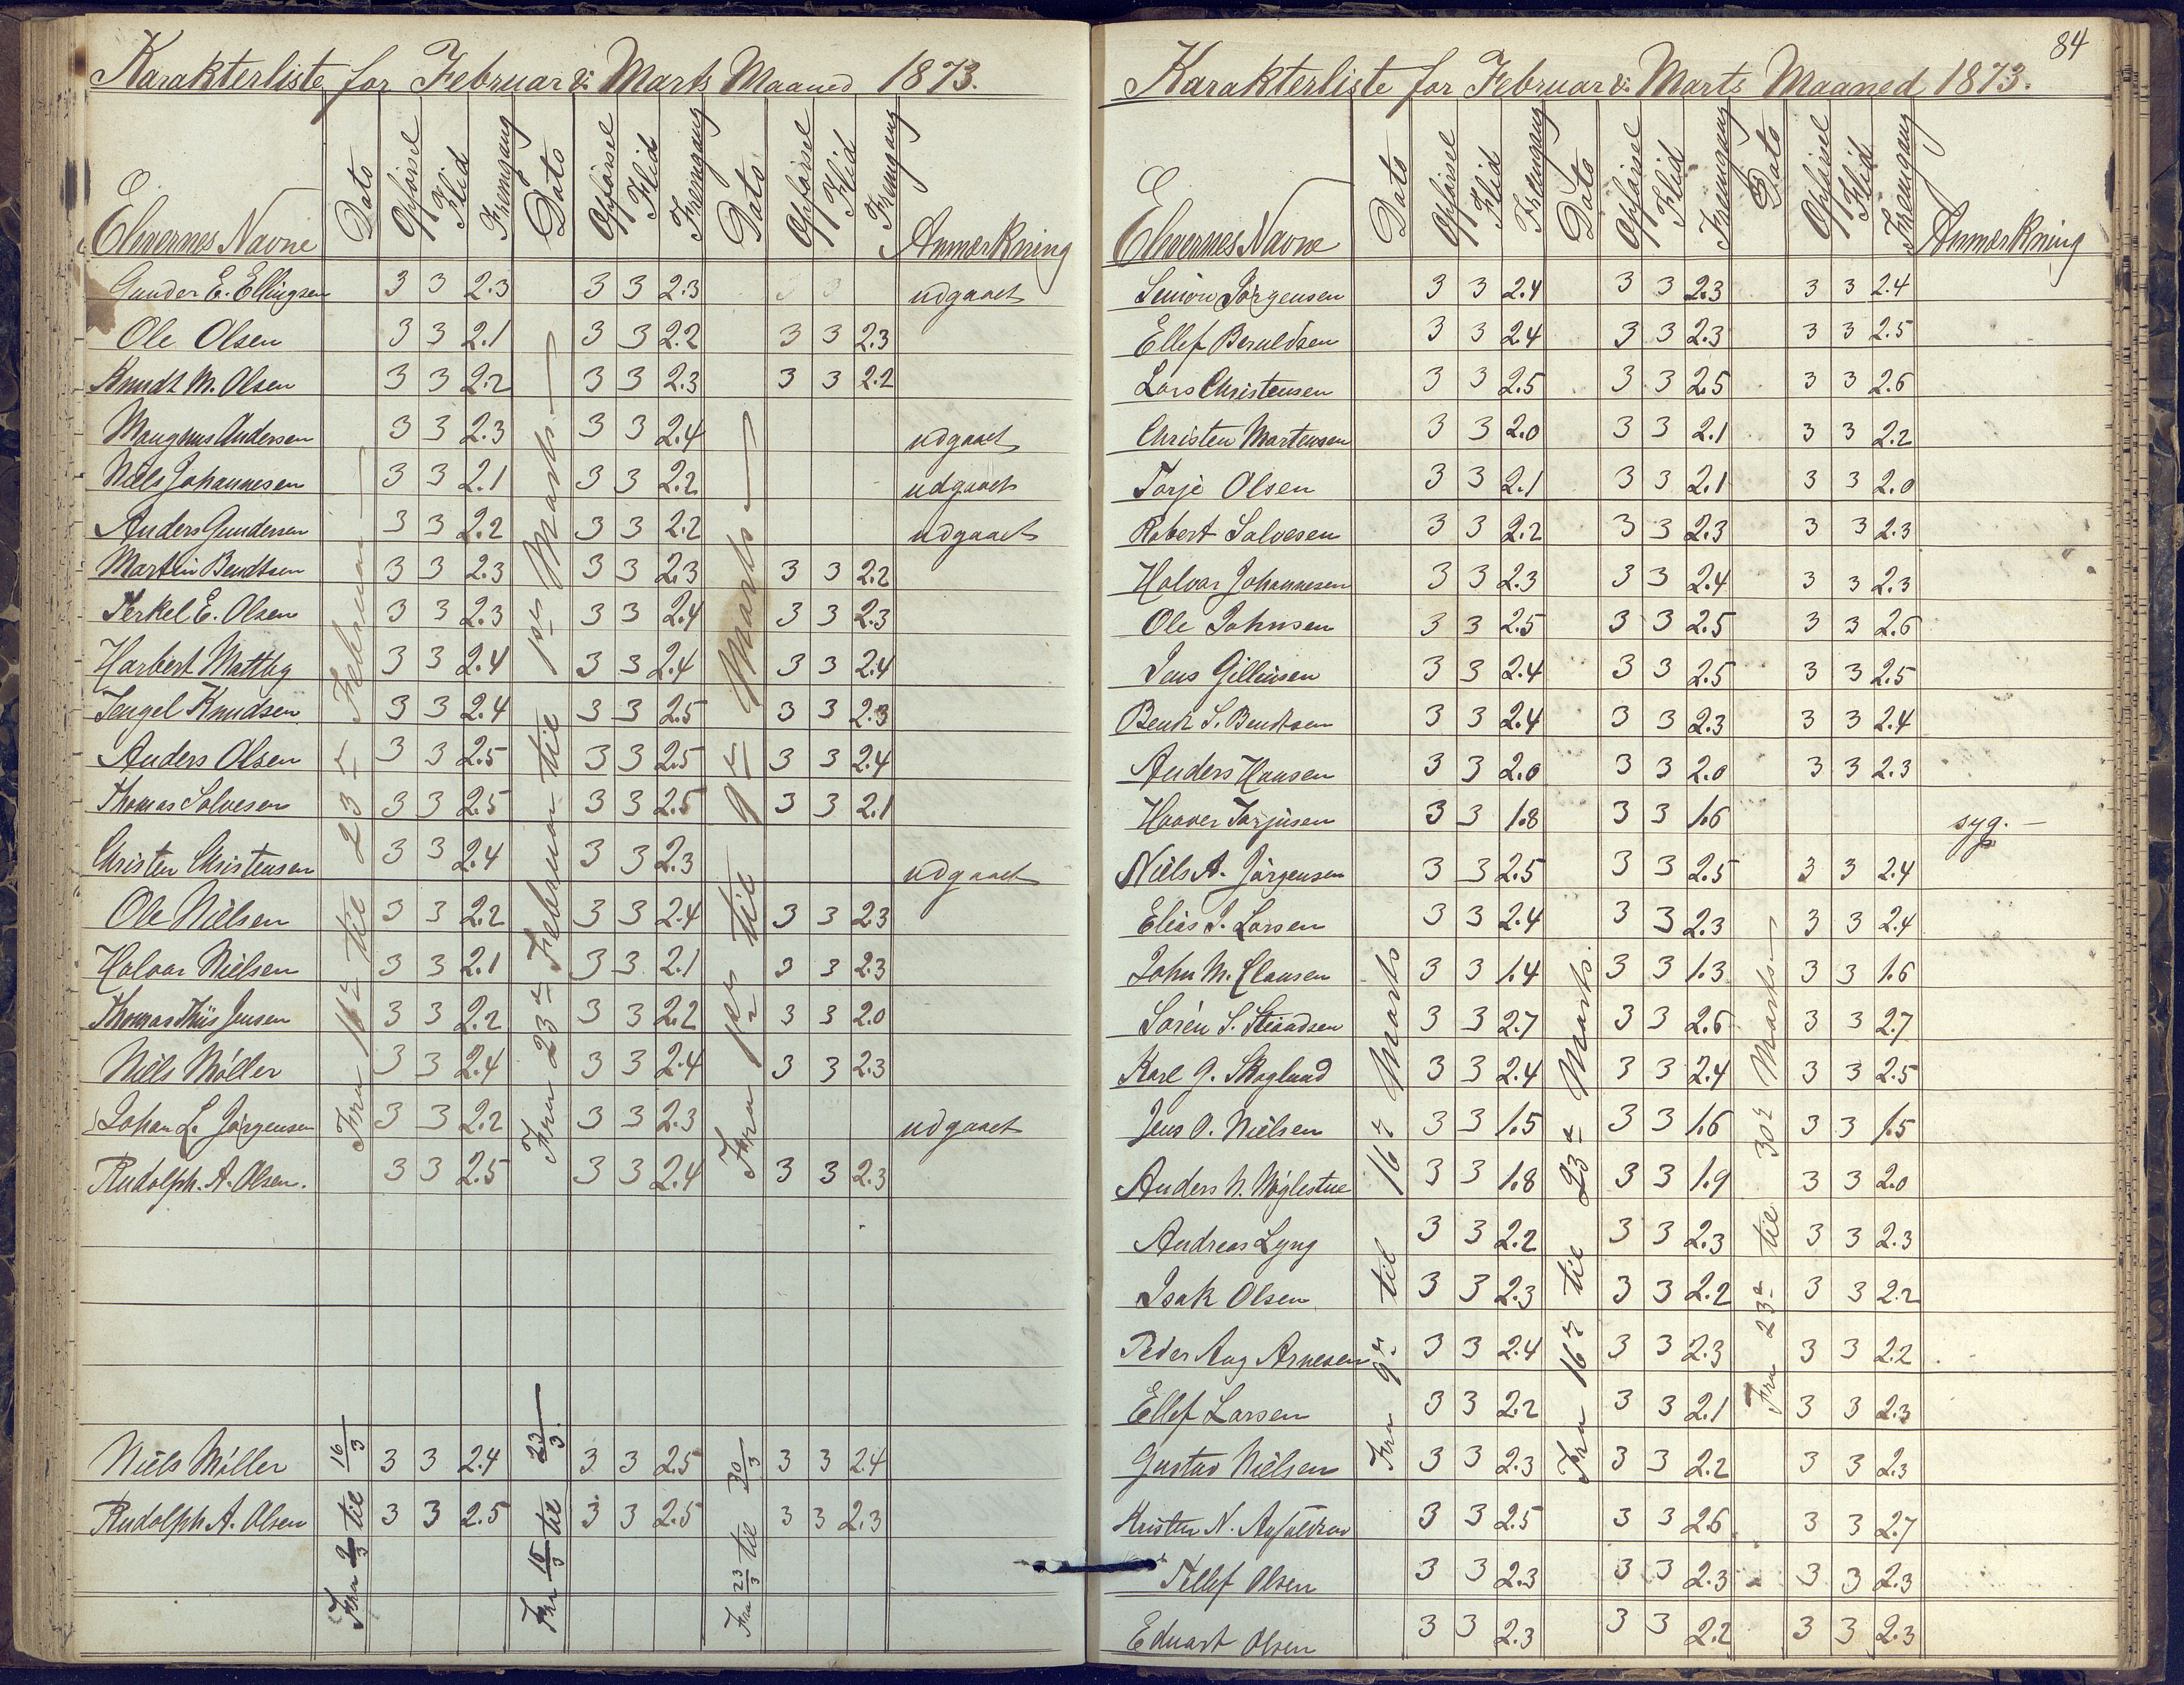 Karakterliste for Februar & Marts Maaned 1873.
Elevernes Navne Dato Opførsel Flid Fremgang Dato Opførsel Flid Fremgang Dato Opførsel Flid Fremgang Anmerkning
Fra 16de til 23de Februar
Fra 23de Februar til 1ste Marts
Fra 1ste til 9de Marts
Gunder E. Ellingsen 3 3 2.3 3 3 2.3 3 3 udgaaet
Ole Olsen 3 3 2.1 3 3 2.2 3 3 2.3
Knudt M. Olsen 3 3 2.2 3 3 2.3 3 3 2.2
Maugnus Andersen 3 3 2.3 3 3 2.4 udgaaet
Niels Johannesen 3 3 2.1 3 3 2.2 udgaaet
Anders Gundersen 3 3 2.2 3 3 2.2 udgaaet
Martin Bendtsen 3 3 2.3 3 3 2.3 3 3 2.2
Terkel E. Olsen 3 3 2.3 3 3 2.4 3 3 2.3
Harbert Mattby 3 3 2.4 3 3 2.4 3 3 2.4
Tengel Knudsen 3 3 2.4 3 3 2.5 3 3 2.3
Anders Olsen 3 3 2.5 3 3 2.5 3 3 2.4
Thomas Salvesen 3 3 2.5 3 3 2.5 3 3 2.1
Christen Christensen 3 3 2.4 3 3 2.3 udgaaet
Ole Nielsen 3 3 2.2 3 3 2.4 3 3 2.3
Halvar Nielsen 3 3 2.1 3 3 2.1 3 3 2.3
Thomas Thiis Jensen 3 3 2.2 3 3 2.2 3 3 2.0
Niels Møller 3 3 2.4 3 3 2.4 3 3 2.3
Johan L. Jørgensen 3 3 2.2 3 3 2.3 udgaaet
Rudolph. A. Olsen. 3 3 2.5 3 3 2.4 3 3 2.3
Fra 9/3 til 16/3
Fra 16/3 til 23/3
Fra 23/3 til 30/3
Niels Møller 3 3 2.4 3 3 2.5 3 3 2.4
Rudolph A. Olsen 3 3 2.5 3 3 2.5 3 3 2.3
84
Karakterliste for Februar & Marts Maaned 1873.
Elevernes Navne Dato Opførsel Flid Fremgang Dato Opførsel Flid Fremgang Dato Opførsel Flid Fremgang Anmerkning
Fra 9de til 16de Marts
Fra 16de til 23de Marts
Fra 23de til 30te Marts
Simon Jørgensen 3 3 2.4 3 3 2.3 3 3 2.4
Ellef Beruldsen 3 3 2.4 3 3 2.3 3 3 2.5
Lars Christensen 3 3 2.5 3 3 2.5 3 3 2.6
Christen Martensen 3 3 2.0 3 3 2.1 3 3 2.2
Torje Olsen 3 3 2.1 3 3 2.1 3 3 2.0
Robert Salvesen 3 3 2.2 3 3 2.3 3 3 2.3
Halvar Johannesen 3 3 2.3 3 3 2.4 3 3 2.3
Ole Johnsen 3 3 2.5 3 3 2.5 3 3 2.6
Jens Gillinsen 3 3 2.4 3 3 2.5 3 3 2.5
Bendt S. Bendtsen 3 3 2.4 3 3 2.3 3 3 2.4
Anders Hansen 3 3 2.0 3 3 2.0 3 3 2.3
Haaver Torjusen 3 3 1.8 3 3 1.6 syg.
Niels A. Jørgensen 3 3 2.5 3 3 2.5 3 3 2.4
Elias J. Larsen 3 3 2.4 3 3 2.3 3 3 2.4
John M. Clausen 3 3 1.4 3 3 1.3 3 3 1.6
Søren S. 3 3 2.7 3 3 2.6 3 3 2.7
Karl G. Skoglund 3 3 2.4 3 3 2.4 3 3 2.5
Jens O. Nielsen 3 3 1.5 3 3 1.6 3 3 1.5
Anders N. Nøglestue 3 3 1.8 3 3 1.9 3 3 2.0
Andreas Lyng 3 3 2.2 3 3 2.3 3 3 2.3
Isak Olsen 3 3 2.3 3 3 2.2 3 3 2.2
Peder Aug Arnesen 3 3 2.4 3 3 2.3 3 3 2.2
Ellef Larsen 3 3 2.2 3 3 2.1 3 3 2.3
Gustav Nielsen 3 3 2.3 3 3 2.2 3 3 2.3
Kristen N. 3 3 2.5 3 3 2.6 3 3 2.7
Tellef Olsen 3 3 2.3 3 3 2.3 3 3 2.3
Eduart Olsen 3 3 2.3 3 3 2.2 3 3 2.3